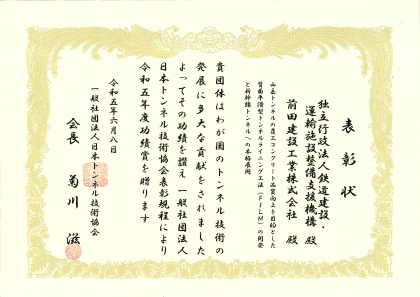 表彰状
独立行政法人鉄道建設・
運輸施設整備支援機構 殿
前田建設工業株式会社 殿
山岳トンネルの覆工コンクリート品質向上を目的とした
背面平滑型トンネルライニング工法（FILM）の開発
と新幹線トンネルへの本格展開
貴団体はわが国のトンネル技術の
発展に多大な貢献をされました
よってその功績を讃え 一般社団法人
日本トンネル技術協会表彰規程により
令和五年度功績賞を贈ります
令和五年六月八日
一般社団法人日本トンネル技術協会
会長 菊川 滋